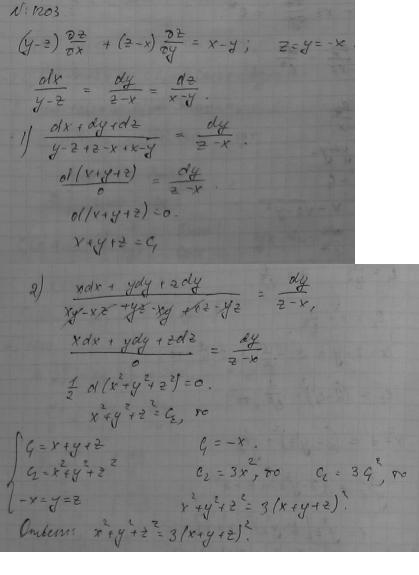 № 1203
(y-z) ∂z/∂x + (z-x) ∂z/∂y = x-y; z=y=-x.
dx/(y-z) = dy/(z-x) = dz/(x-y).
1) (dx+dy+dz)/(y-z+z-x+x-y) = dy/(z-x).
d(x+y+z)/0 = dy/(z-x).
d(x+y+z)=0.
x+y+z=C₁
2) (xdx+ydy+zdy)/(xy-xz+yz-xy+xz-yz) = dy/(z-x),
(xdx+ydy+zdz)/0 = dy/(z-x).
1/2 d(x²+y²+z²)=0.
x²+y²+z²=C₂, то
C₁=x+y+z C₁=-x.
C₂=x²+y²+z² C₂=3x², то C₂=3C₁², то
-x=y=z x²+y²+z²=3(x+y+z)².
Ответ: x²+y²+z²=3(x+y+z)².